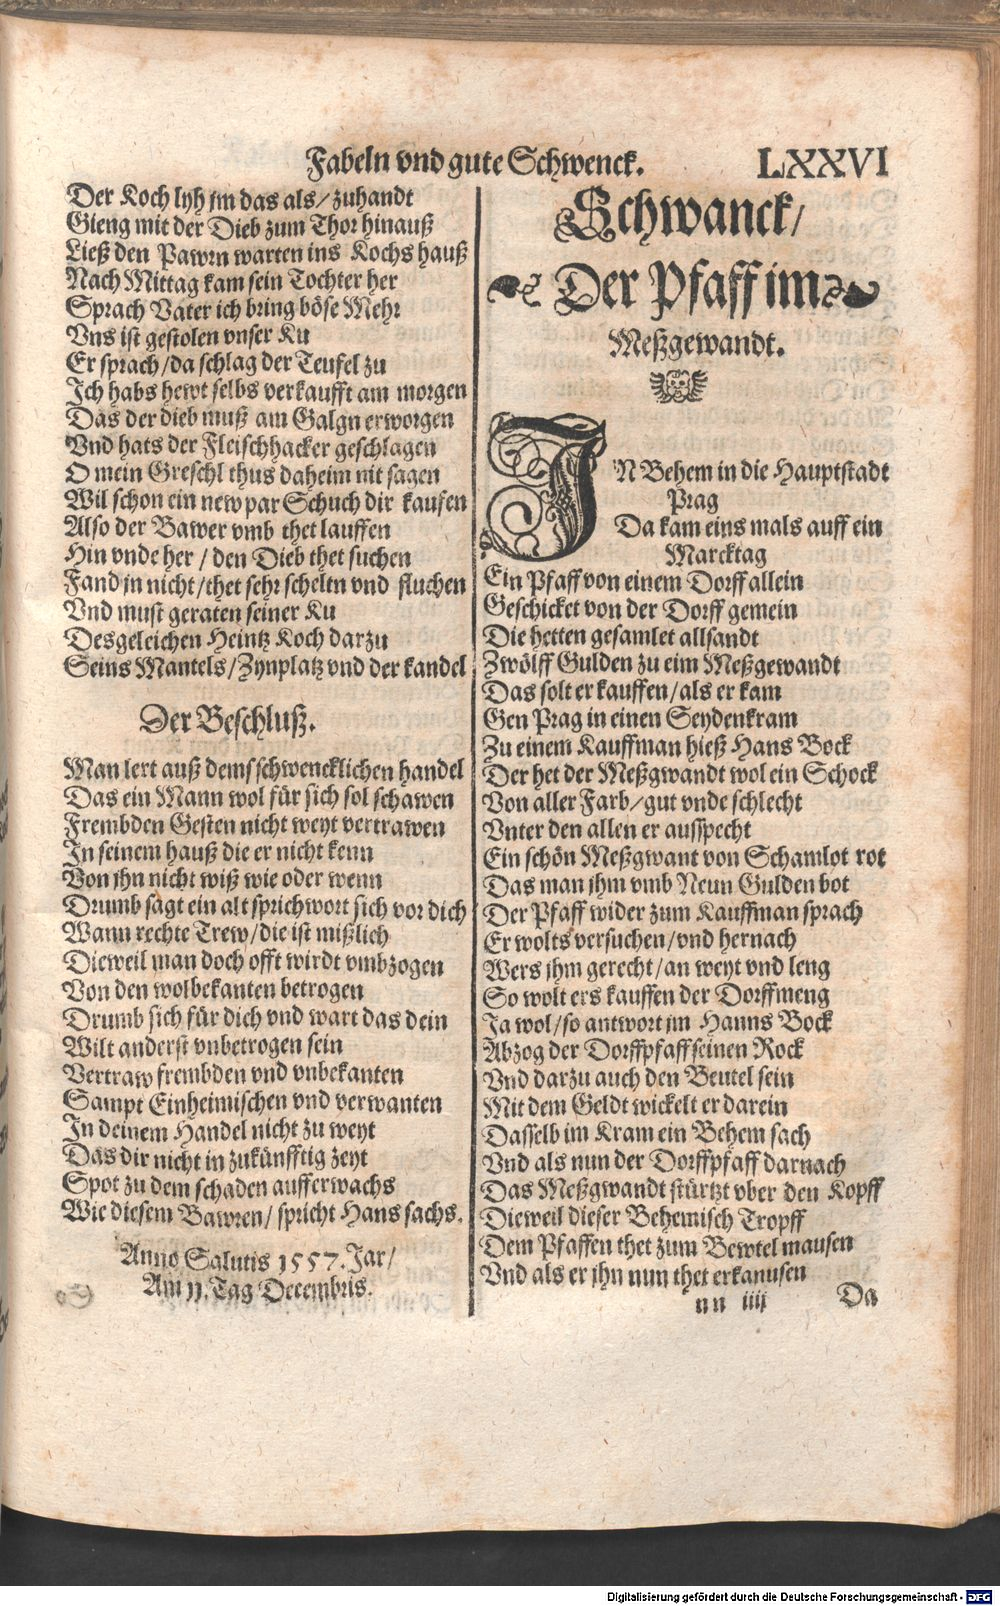 Fabeln vnd gute Schwenck. LXXVI
Der Koch lyh jm das als/ zuhandt
Gieng mit der Dieb zum Thor hinauß
Ließ den Pawrn warten ins Kochs hauß
Nach Mittag kam sein Tochter her
Sprach Vater ich bring böse Mehr
Vns ist gestolen vnser Ku
Er sprach/ da schlag der Teufel zu
Ich habs hewt selbs verkaufft am morgen
Das der dieb muß am Galgn erworgen
Vnd hats der Fleischhacker geschlagen
O mein Greschl thus daheim nit sagen
Wil schon ein new par Schuch dir kaufen
Also der Bawer vmb thet lauffen
Hin vnde her / den Dieb thet suchen
Fand jn nicht/ thet sehr scheltn vnd fluchen
Vnd must geraten seiner Ku
Desgeleichen Heintz Koch darzu
Seins Mantels/ Zynplatz vnd der kandel
Der Beschluß.
Man lert auß dem schwencklichen handel
Das ein Mann wol für sich sol schawen
Frembden Gesten nicht weyt vertrawen
In seinem hauß die er nicht kenn
Von jhn nicht wiß wie oder wenn
Drumb sagt ein alt sprichwort sich vor dich
Wann rechte Trew/ die ist mißlich
Dieweil man doch offt wirdt vmbzogen
Von den wolbekanten betrogen
Drumb sich für dich vnd wart das dein
Wilt anderst vnbetrogen sein
Vertraw frembden vnd vnbekanten
Sampt Einheimischen vnd verwanten
In deinem Handel nicht zu weyt
Das dir nicht in zukünfftig zeyt
Spot zu dem schaden aufferwachs
Wie diesem Bawren/ spricht Hans sachs.
Anno Salutis 1557. Jar/
Am 11. Tag Decembris.
Schwanck/
Der Pfaff im
Meßgewandt.
IN Behem in die Hauptstadt
Prag
Da kam eins mals auff ein
Marcktag
Ein Pfaff von einem Dorff allein
Geschicket von der Dorff gemein
Die hetten gesamlet allsandt
Zwölff Gulden zu eim Meßgewandt
Das solt er kauffen/ als er kam
Gen Prag in einen Seydenkram
Zu einem Kauffman hieß Hans Bock
Der het der Meßgwandt wol ein Schock
Von aller Farb/ gut vnde schlecht
Vnter den allen er ausspecht
Ein schön Meßgwant von Schamlot rot
Das man jhm vmb Neun Gulden bot
Der Pfaff wider zum Kauffman sprach
Er wolts versuchen/ vnd hernach
Wers jhm gerecht/ an weyt vnd leng
So wolt ers kauffen der Dorffmeng
Ja wol/ so antwort jm Hanns Bock
Abzog der Dorffpfaff seinen Rock
Vnd darzu auch den Beutel sein
Mit dem Geldt wickelt er darein
Dasselb im Kram ein Behem sach
Vnd als nun der Dorffpfaff darnach
Das Meßgwandt stürtzt vber den Kopff
Dieweil dieser Behemisch Tropff
Dem Pfaffen thet zum Bewtel mausen
Vnd als er jhn nun thet erkanusen
nn iiij Da
Digitalisierung gefördert durch die Deutsche Forschungsgemeinschaft - DFG